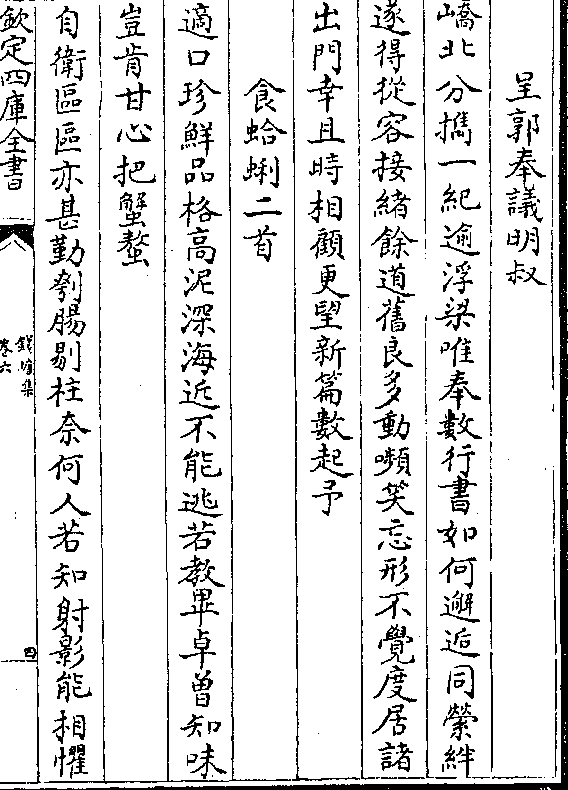 呈郭奉議明叔
嶠北分攜一紀逾浮梁唯奉數行書如何邂逅同縈絆
遂得從容接緒餘道舊良多動嚬笑忘形不覺度居諸
出門幸且時相顧更望新篇數起予
食蛤蜊二首
適口珍鮮品格高泥深海近不能逃若教畢卓曾知味
豈肯甘心把蟹螯
自衛區區亦甚勤刳腸剔柱奈何人若知射影能相懼
欽定四庫全書
卷六
四